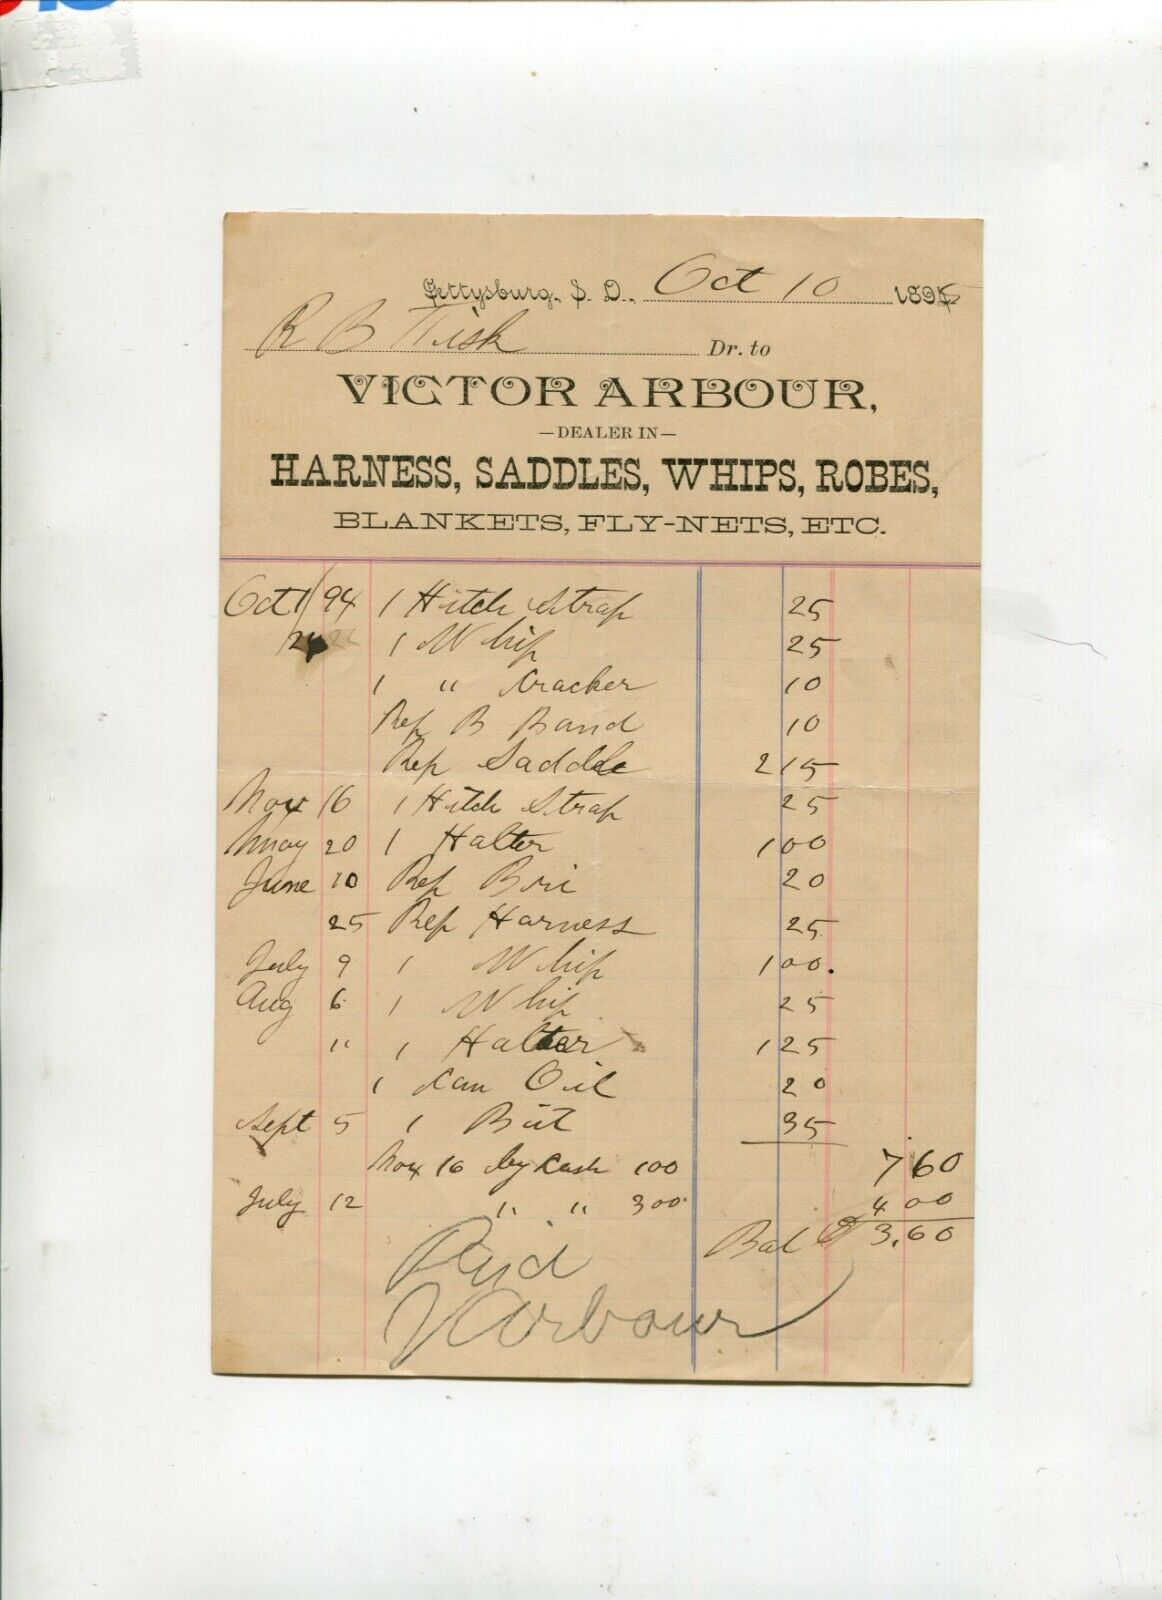 Gettysburg, S. D., Oct 10 1895
R B Fisk Dr. to
VICTOR ARBOUR,
—DEALER IN—
HARNESS, SADDLES, WHIPS, ROBES,
BLANKETS, FLY-NETS, ETC.
Oct 1/94 1 Hitch Strap 25
24 1 Whip 25
1 " Cracker 10
Rep B Band 10
Rep Saddle 2 15
Nov 16 1 Hitch Strap 25
May 20 1 Halter 1 00
June 10 Rep 20
25 Rep Harness 25
July 9 1 Whip 1 00.
Aug 6 1 Whip 25
" 1 Halter 1 25
1 Can Oil 20
Sept 5 1 Bit 35
Nov 16 by Cash 1 00 7 60
July 12 " " 3 00 4 00
Bal $ 3.60
Paid
V Arbour